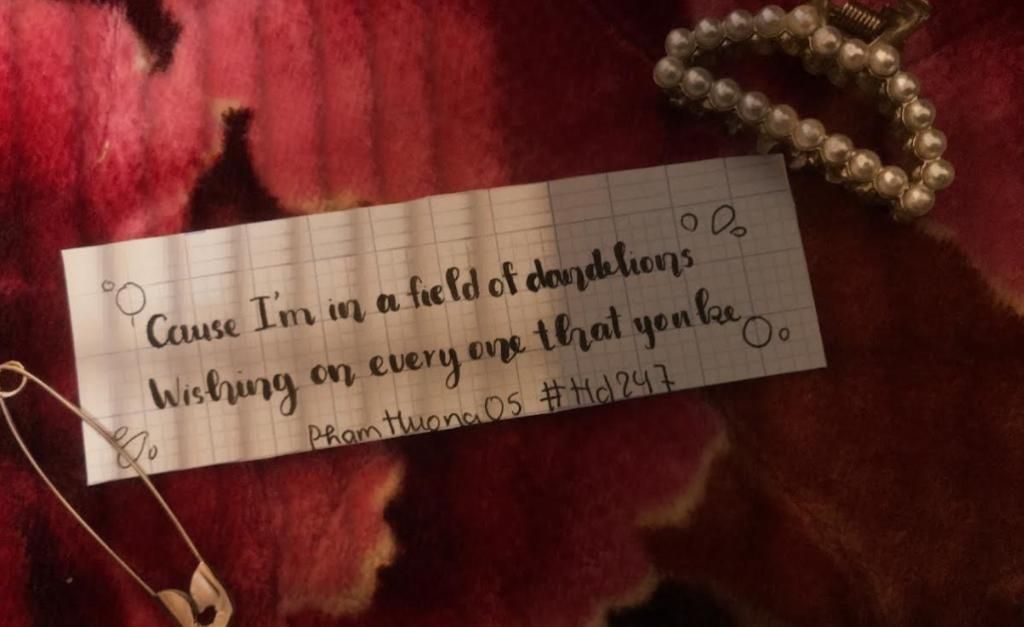 Cause I'm in a field of dandelions
Wishing on every one that you be
PhamHuong05 #Hd247